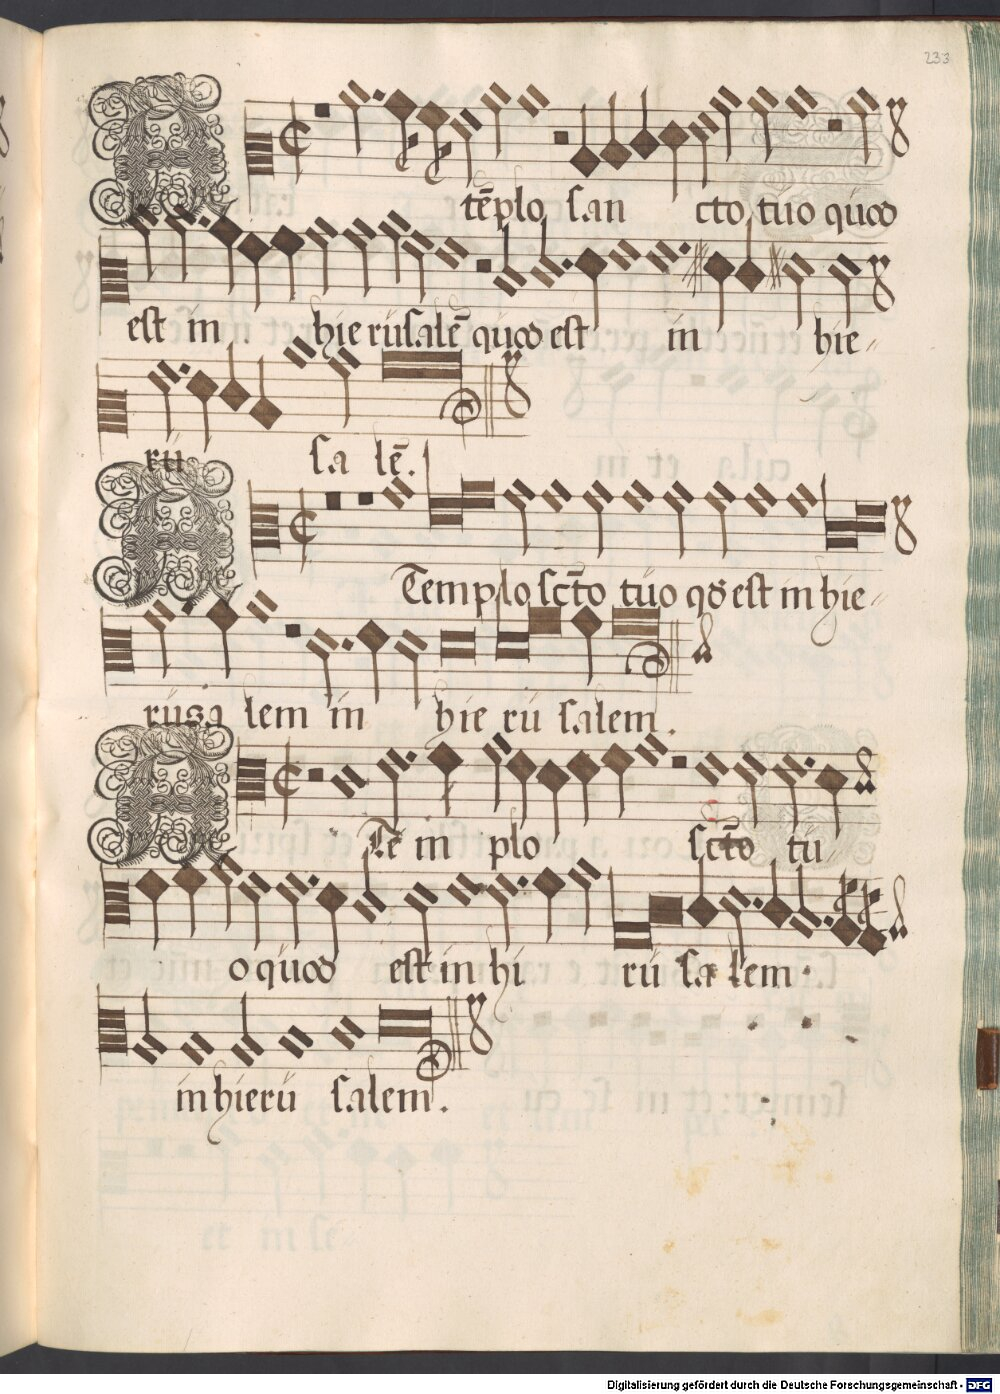 233
A tēplo san cto tuo quod
est in hie rusalē quod est in hie
ru sa lē.
A Templo scto tuo qd est in hie
rusa lem in hie ru salem.
A Te m plo scto tu
o quod est in hi ru sa lem
in hieru salem.
Digitalisierung gefördert durch die Deutsche Forschungsgemeinschaft - DFG